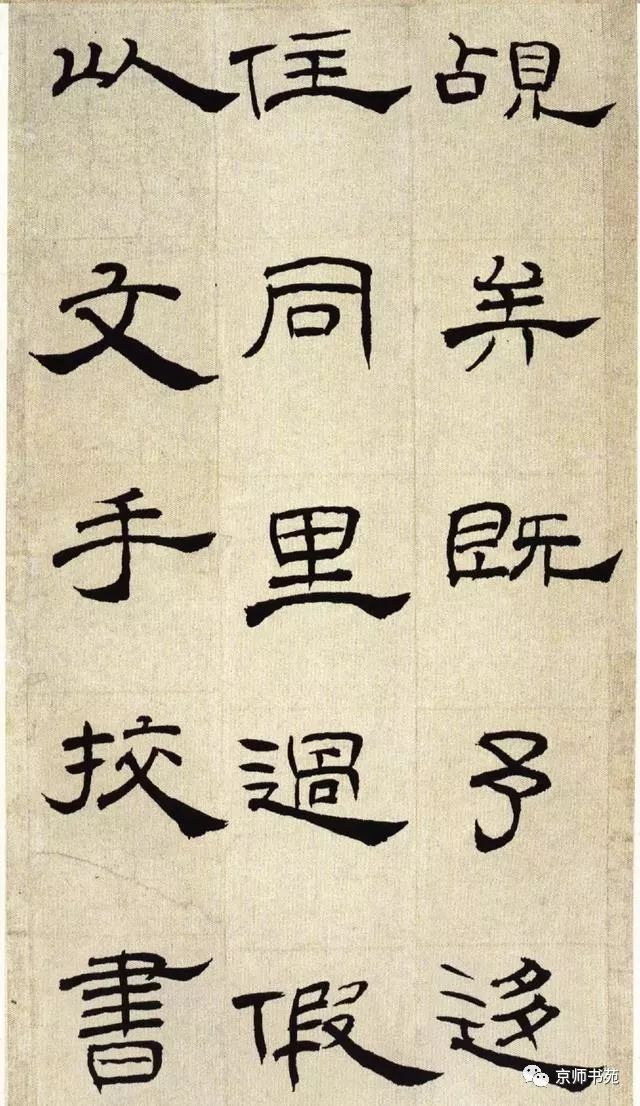 覘既予迻
住同里過假
以文手挍書
京师书苑